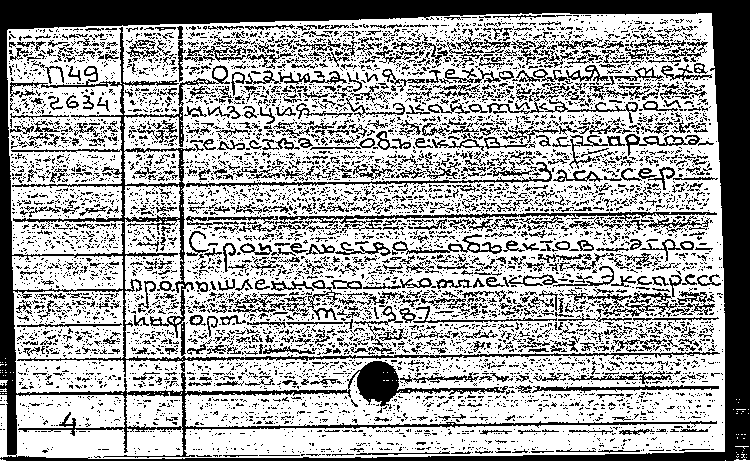 П49
2634
Организация, технология, меха-
низация и экономика строи-
тельства объектов агропрома
Загл. сер.
Строительство объектов агро-
промышленного комплекса: Экспресс
информ. - М., 1987 -
4